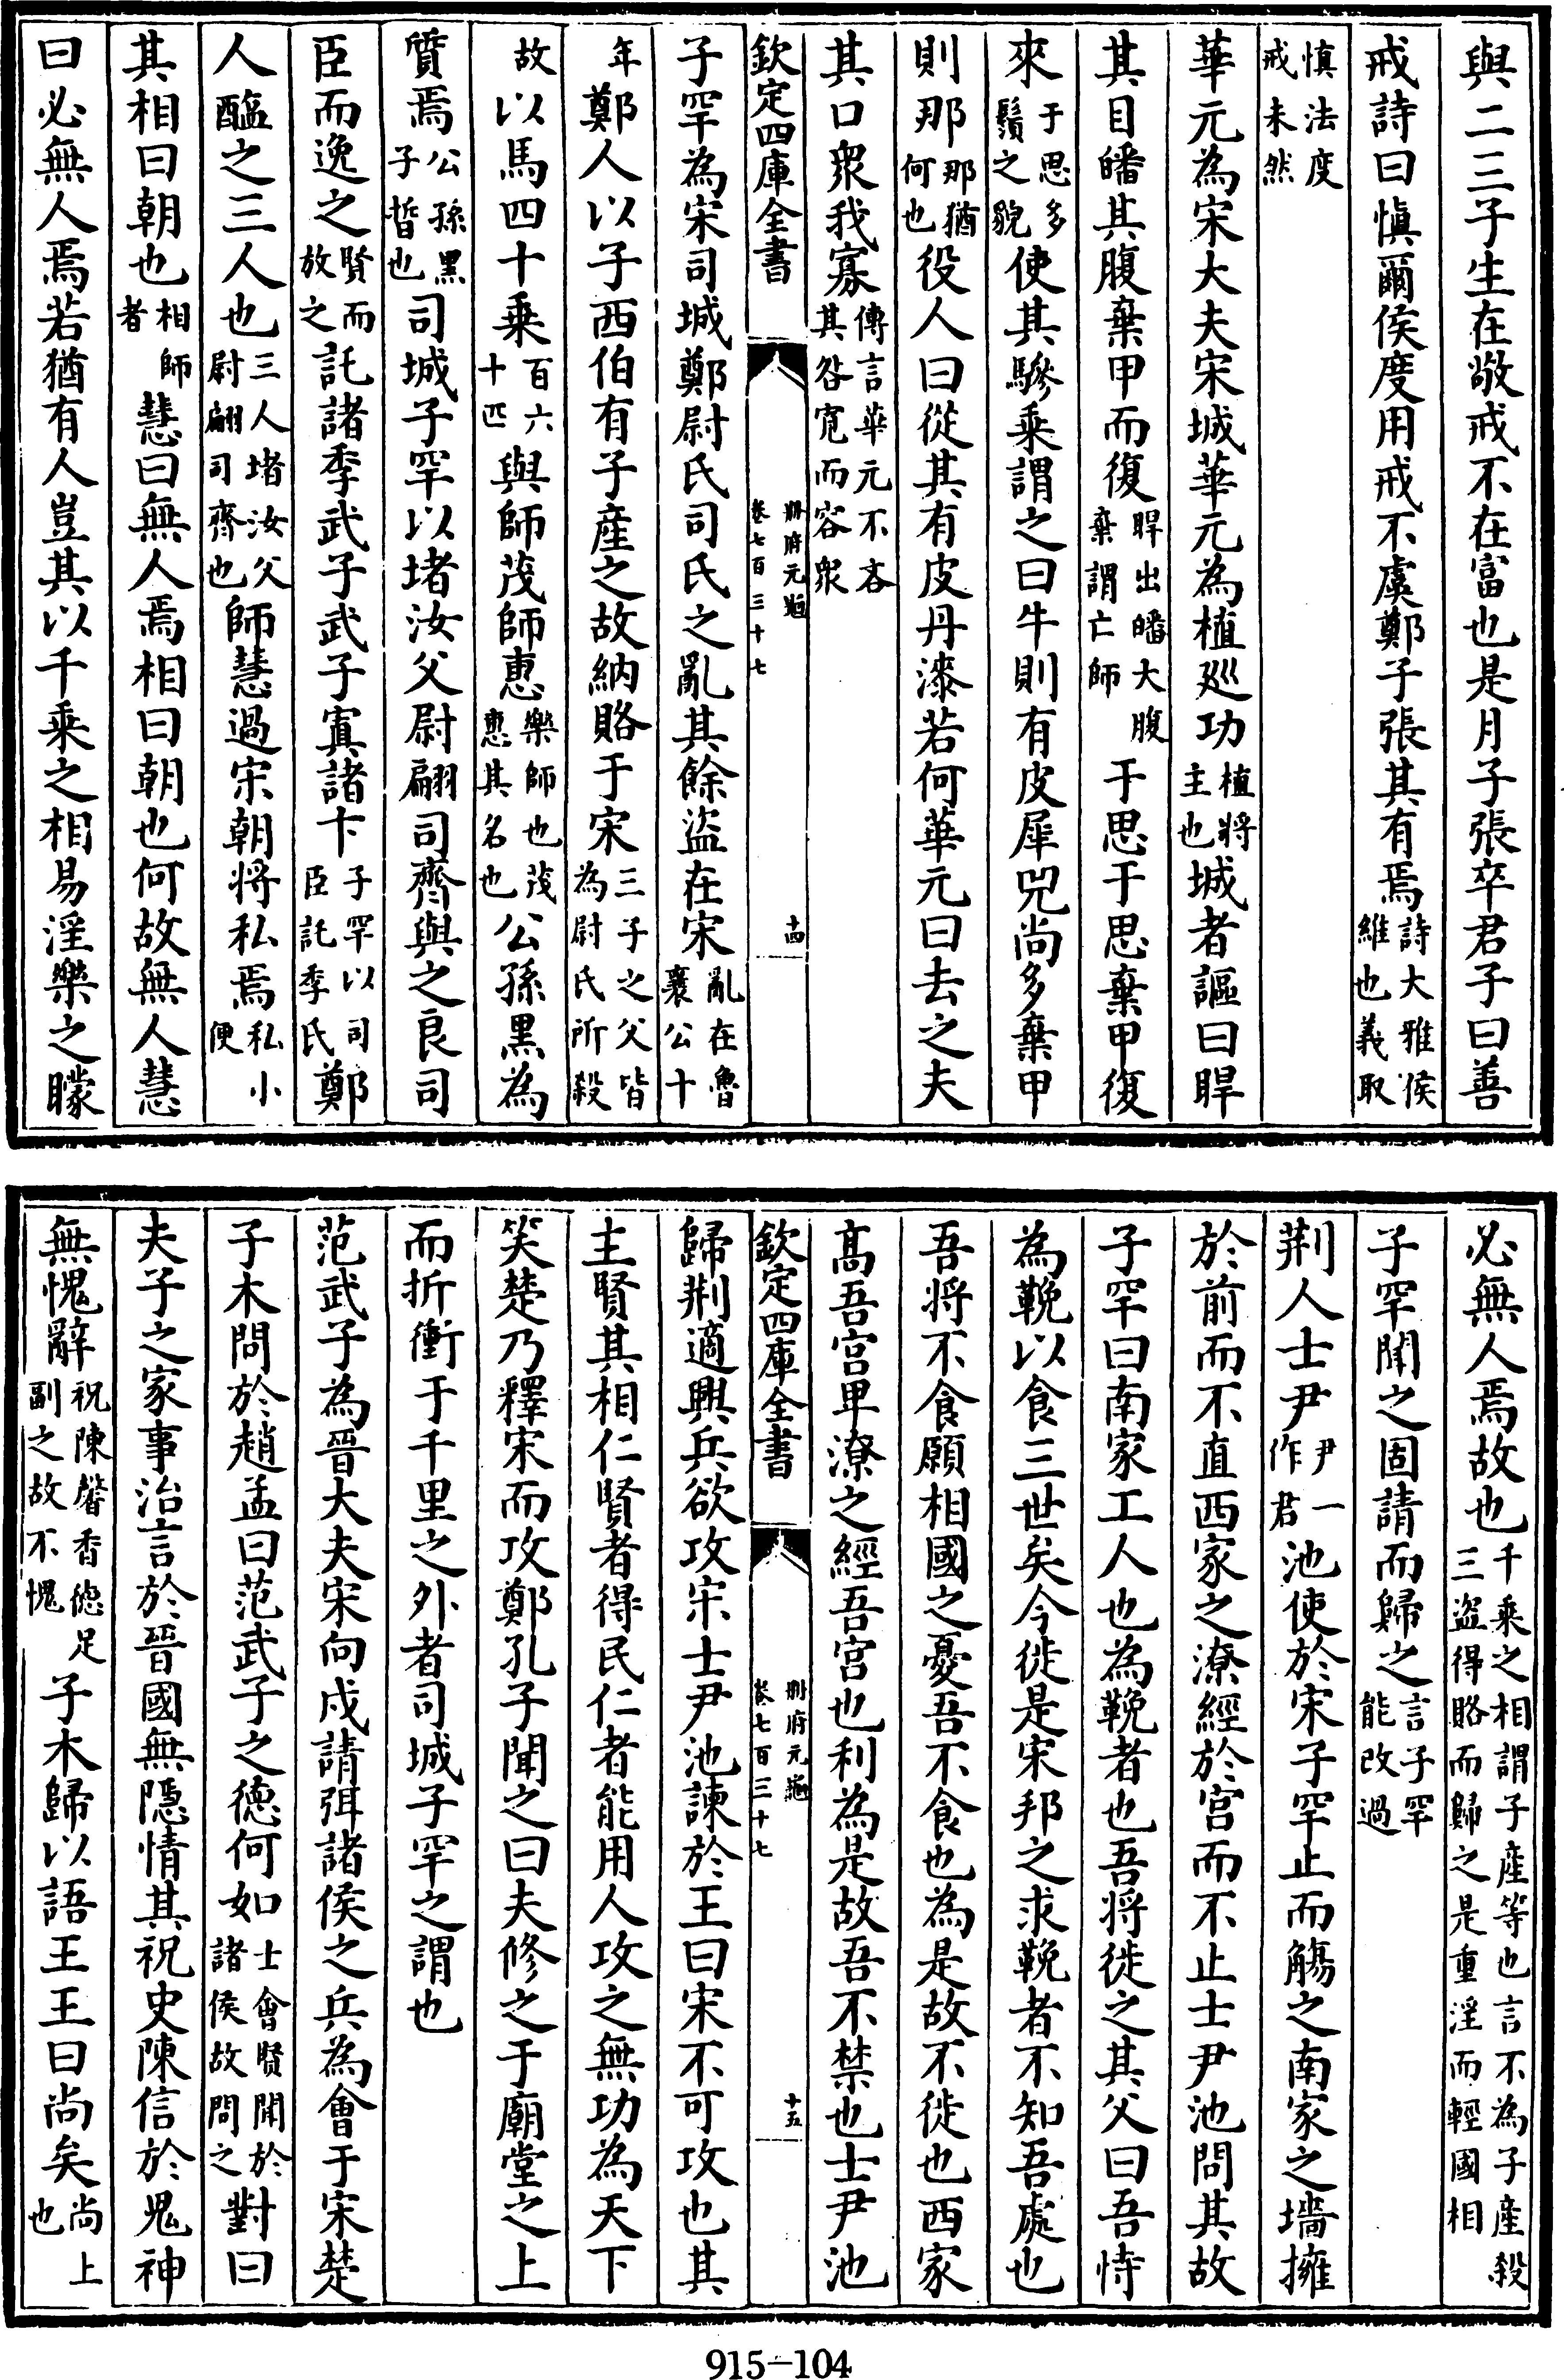 與二三子生在敬戒不在富也是月子張卒君子曰善
戒詩曰慎爾侯度用戒不虞鄭子張其有焉詩大雅侯維也義取
慎法度戒未然
華元為宋大夫宋城華元為植廵功植將主也城者謳曰睅
其目皤其腹棄甲而復睅出皤大腹棄謂亡師于思于思棄甲復
來于思多鬚之貌使其驂乘謂之曰牛則有皮犀兕尚多棄甲
則那那猶何也役人曰從其有皮丹漆若何華元曰去之夫
其口衆我寡傳言華元不吝其咎寛而容衆
欽定四庫全書
冊府元龜
卷七百三十七
十四
子罕為宋司城鄭尉氏司氏之亂其餘盜在宋亂在魯襄公十
年鄭人以子西伯有子產之故納賂于宋三子之父皆為尉氏所殺
故以馬四十乘百六十匹與師茷師惠樂師也茷惠其名也公孫黑為
質焉公孫黑子晳也司城子罕以堵汝父尉翩司齊與之良司
臣而逸之賢而放之託諸季武子武子寘諸卞子罕以司臣託季氏鄭
人醢之三人也三人堵汝父尉翩司齊也師慧過宋朝將私焉私小便
其相曰朝也相師者慧曰無人焉相曰朝也何故無人慧
曰必無人焉若猶有人豈其以千乘之相易淫樂之矇
必無人焉故也千乘之相謂子產等也言不為子產殺三盜得賂而歸之是重淫而輕國相
子罕聞之固請而歸之言子罕能改過
荆人士尹尹一作君池使於宋子罕止而觴之南家之墻擁
於前而不直西家之潦經於宫而不止士尹池問其故
子罕曰南家工人也為鞔者也吾將徙之其父曰吾恃
為鞔以食三世矣今徙是宋邦之求鞔者不知吾處也
吾將不食願相國之憂吾不食也為是故不徙也西家
髙吾宫卑潦之經吾宫也利為是故吾不禁也士尹池
欽定四庫全書
冊府元龜
卷七百三十七
十五
歸荆適興兵欲攻宋士尹池諫於王曰宋不可攻也其
主賢其相仁賢者得民仁者能用人攻之無功為天下
笑楚乃釋宋而攻鄭孔子聞之曰夫修之于廟堂之上
而折衝于千里之外者司城子罕之謂也
范武子為晉大夫宋向戌請弭諸侯之兵為會于宋楚
子木問於趙孟曰范武子之德何如士會賢聞於諸侯故問之對曰
夫子之家事治言於晉國無隱情其祝史陳信於鬼神
無愧辭祝陳馨香德足副之故不愧子木歸以語王王曰尚矣尚上也
915-104